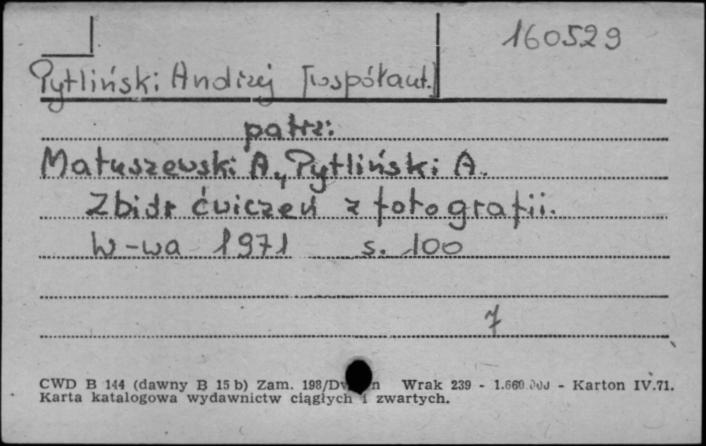 160529
Pytliński Andrzej [współaut.]
patrz:
Matuszewski A., Pytliński A.
Zbiór ćwiczeń z fotografii.
W-wa 1971 s. 100
7
CWD B 144 (dawny B 15 b) Zam. 198/ Wrak 239 - 1.660.000 - Karton IV.71.
Karta katalogowa wydawnictw ciągłych i zwartych.